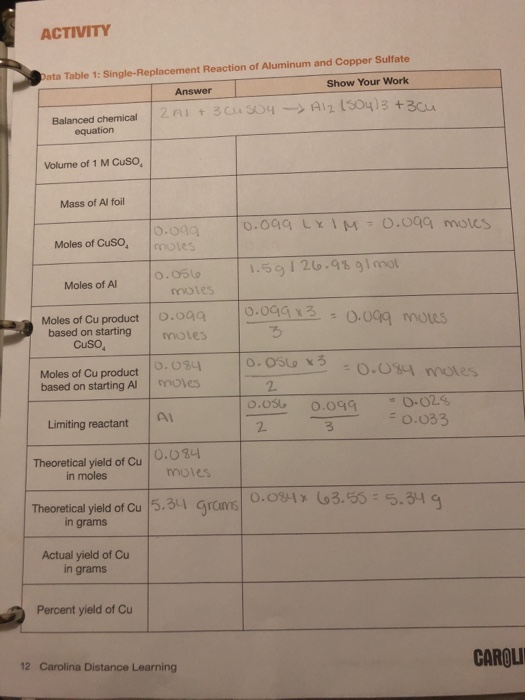 ACTIVITY
Data Table 1: Single-Replacement Reaction of Aluminum and Copper Sulfate
Answer Show Your Work
Balanced chemical equation 2 Al + 3CuSO4 → Al2 (SO4)3 + 3Cu
Volume of 1 M CuSO₄
Mass of Al foil
Moles of CuSO₄ 0.099 moles 0.099 L x 1 M = 0.099 moles
Moles of Al 0.056 moles 1.5g / 26.98 g/mol
Moles of Cu product based on starting CuSO₄ 0.099 moles 0.099 x 3 / 3 = 0.099 moles
Moles of Cu product based on starting Al 0.084 moles 0.056 x 3 / 2 = 0.084 moles
Limiting reactant Al 0.056 / 2 0.099 / 3 = 0.028 = 0.033
Theoretical yield of Cu in moles 0.084 moles
Theoretical yield of Cu in grams 5.34 grams 0.084 x 63.55 = 5.34 g
Actual yield of Cu in grams
Percent yield of Cu
12 Carolina Distance Learning
CAROLI